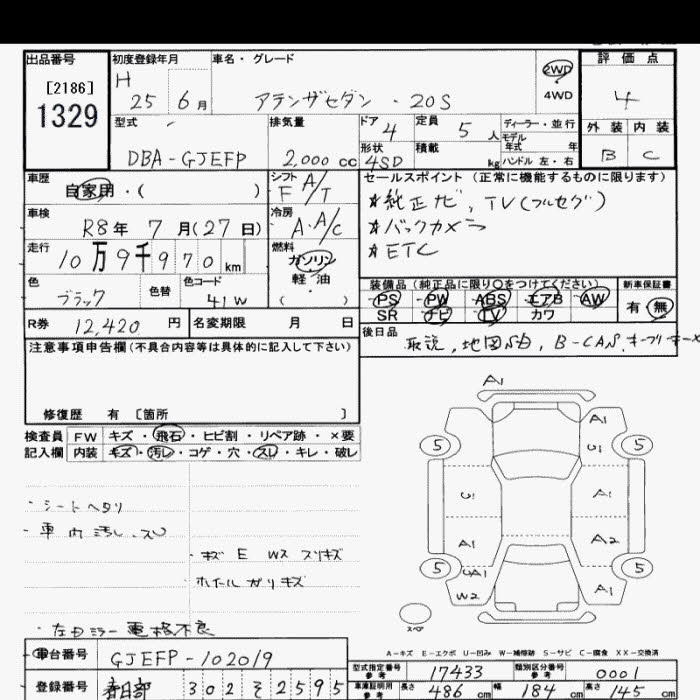 出品番号
[2186]
1329
初度登録年月
H 25 6月
車名・グレード
アテンザセダン・20S
2WD
4WD
評価点
4
外装 内装
B C
型式
DBA-GJEFP
排気量
2,000 cc
ドア 4
形状 4SD
定員 5人
積載 kg
ディーラー・並行
モデル年式 年
ハンドル 左・右
車歴
自家用・( )
シフト F A/T
セールスポイント(正常に機能するものに限ります)
*純正ナビ, TV(フルセグ)
*バックカメラ
*ETC
車検
R8年 7月(27日)
冷房
A・A/C
走行
10万9千970km
燃料
ガソリン
軽油
( )
色
ブラック
色替
色コード
41W
装備品(純正品に限り○をつけてください)
PS PW ABS エアB AW
SR ナビ TV カワ
新車保証書
有・無
R券 12,420円
名変期限 月 日
後日品
取説, 地図SD, B-CAS,
注意事項申告欄(不具合内容等は具体的に記入して下さい)
修復歴 有 [箇所 ]
検査員記入欄
FW キズ・飛石・ヒビ割・リペア跡・×要
内装 キズ・汚レ・コゲ・穴・スレ・キレ・破レ
・シートヘタリ
・車内汚レ、スレ
・キズ E W2 スリキズ
ホイールガリキズ
・左ドアミラー電格不良
A1
5 A1 U1 5
U A1
A1 A2
5 UA1 A1 5
W2
スペア
A-キズ E-エクボ U-凹み W-補修跡 S-サビ C-腐食 XX-交換済
車台番号
GJEFP-102019
登録番号
春日部 302 そ 2595
型式指定番号 参考 17433
類別区分番号 参考 0001
車庫証明用 参考 長さ 486 cm 幅 184 cm 高さ 145 cm